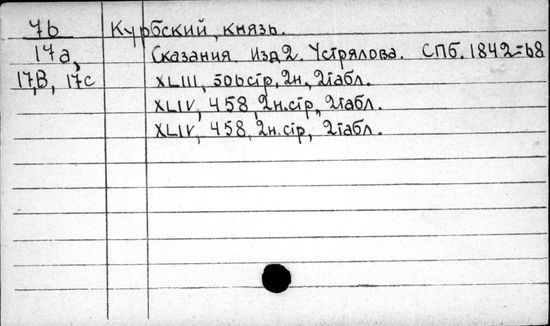 7b Курбский, князь.
17a, Сказания. Изд 2. Устрялова. СПб. 1842=68
17,B, 17c XLIII, 506 стр, 2н, 2 табл.
XLIV, 458, 2н. стр, 2 табл.
XLIV, 458, 2н. стр, 2 табл.